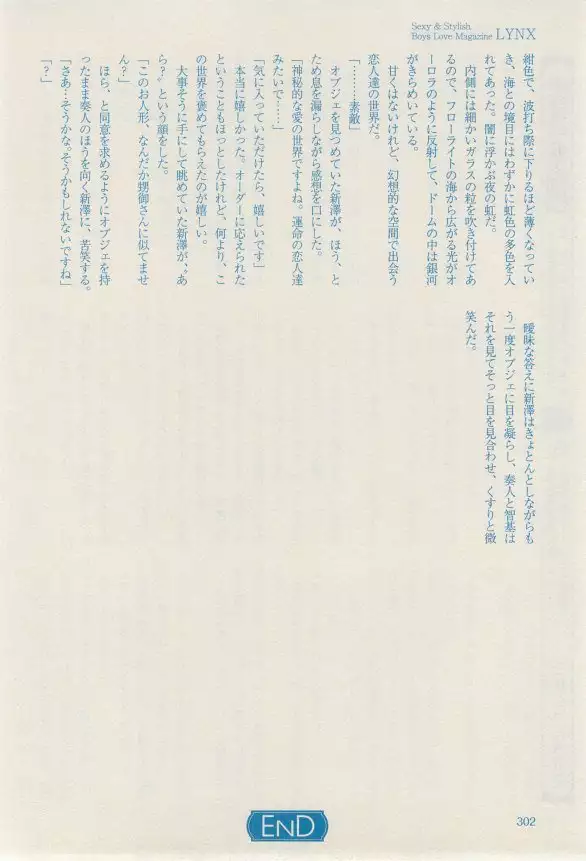 Sexy & Stylish
Boys Love Magazine LYNX
紺色で、波打ち際に下りるほど薄くなってい
き、海との境目にはわずかに虹色の多色を入
れてあった。闇に浮かぶ夜の虹だ。
内側には細かいガラスの粒を吹き付けてあ
るので、フローライトの海から広がる光がオ
ーロラのように反射して、ドームの中は銀河
がきらめいている。
甘くはないけれど、幻想的な空間で出会う
恋人達の世界だ。
「………素敵」
オブジェを見つめていた新澤が、ほう、と
ため息を漏らしながら感想を口にした。
「神秘的な愛の世界ですよね。運命の恋人達
みたいで……」
「気に入っていただけたら、嬉しいです」
本当に嬉しかった。オーダーに応えられた
ということもほっとしたけれど、何より、こ
の世界を褒めてもらえたのが嬉しい。
大事そうに手にして眺めていた新澤が、〝あ
ら？〟という顔をした。
「このお人形、なんだか甥御さんに似てませ
ん？」
ほら、と同意を求めるようにオブジェを持
ったまま奏人のほうを向く新澤に、苦笑する。
「さあ…そうかな。そうかもしれないですね」
「？」
曖昧な答えに新澤はきょとんとしながらも
う一度オブジェに目を凝らし、奏人と智基は
それを見てそっと目を見合わせ、くすりと微
笑んだ。
END
302